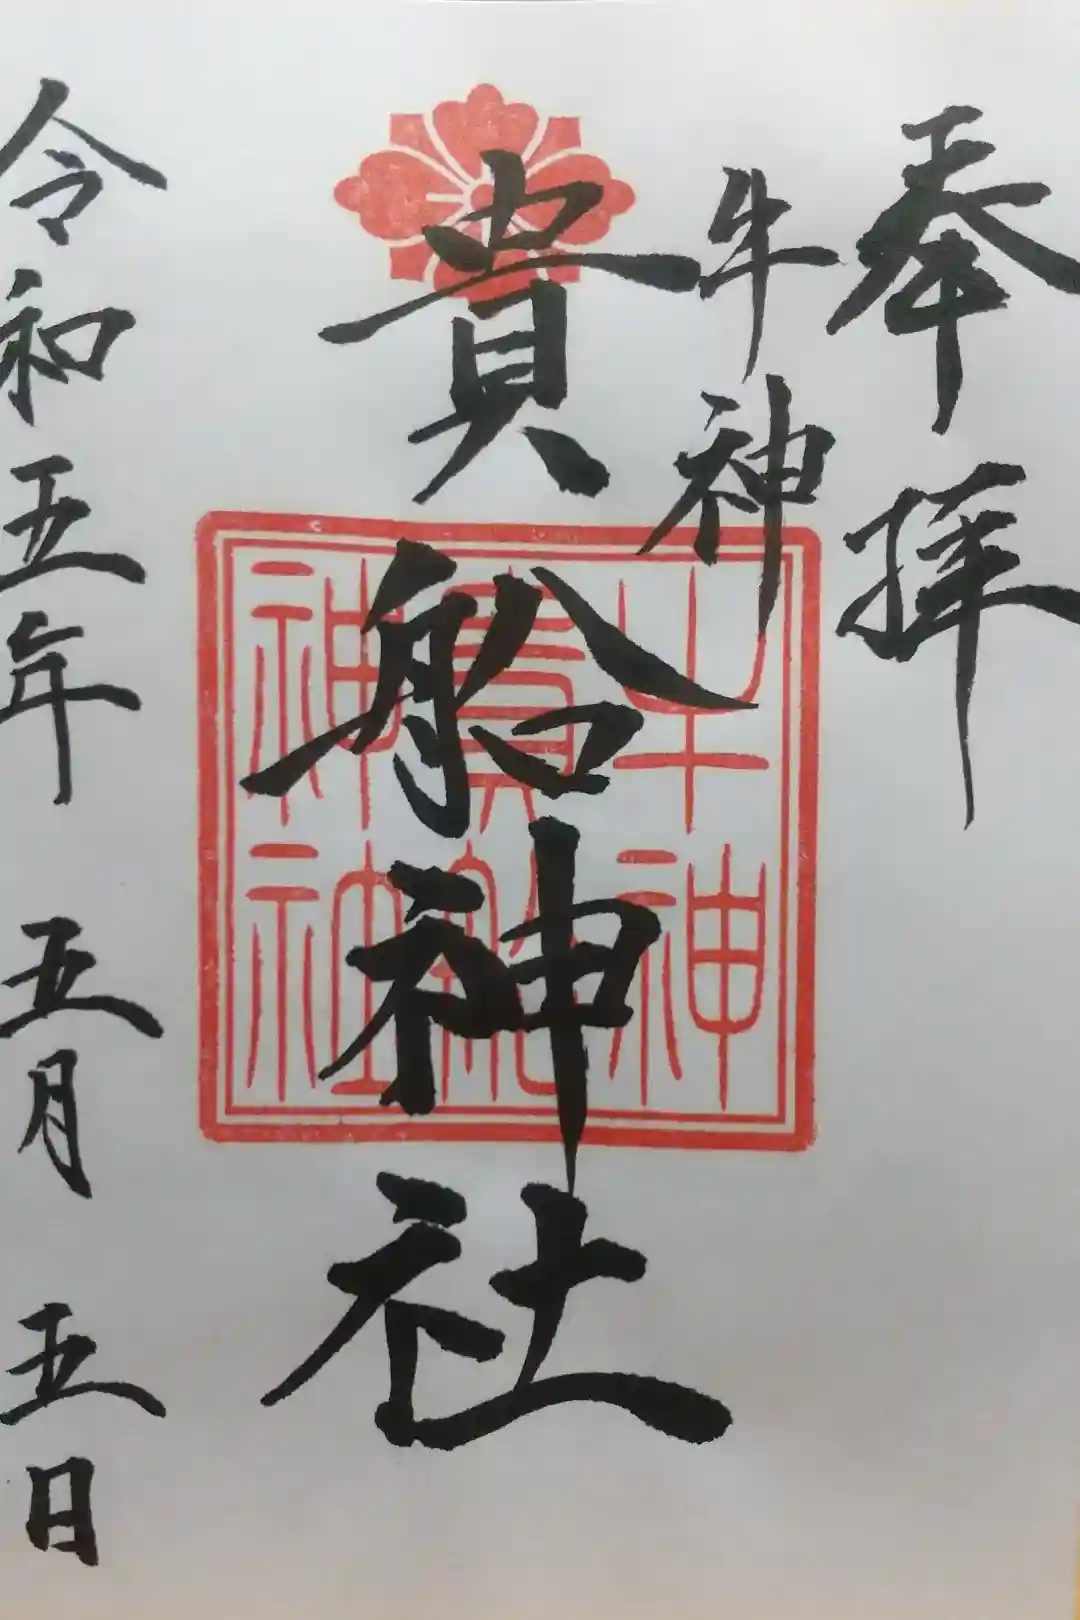 奉拝
牛神
貴船神社
牛神
貴船
神社
令和五年 五月 五日